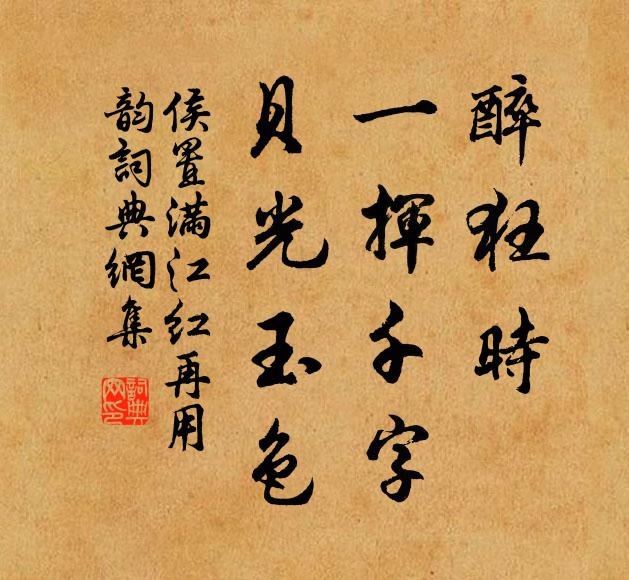 醉狂時
一揮千字
貝光玉色
侯置滿江紅再用
韵詞典網集
詞典網印